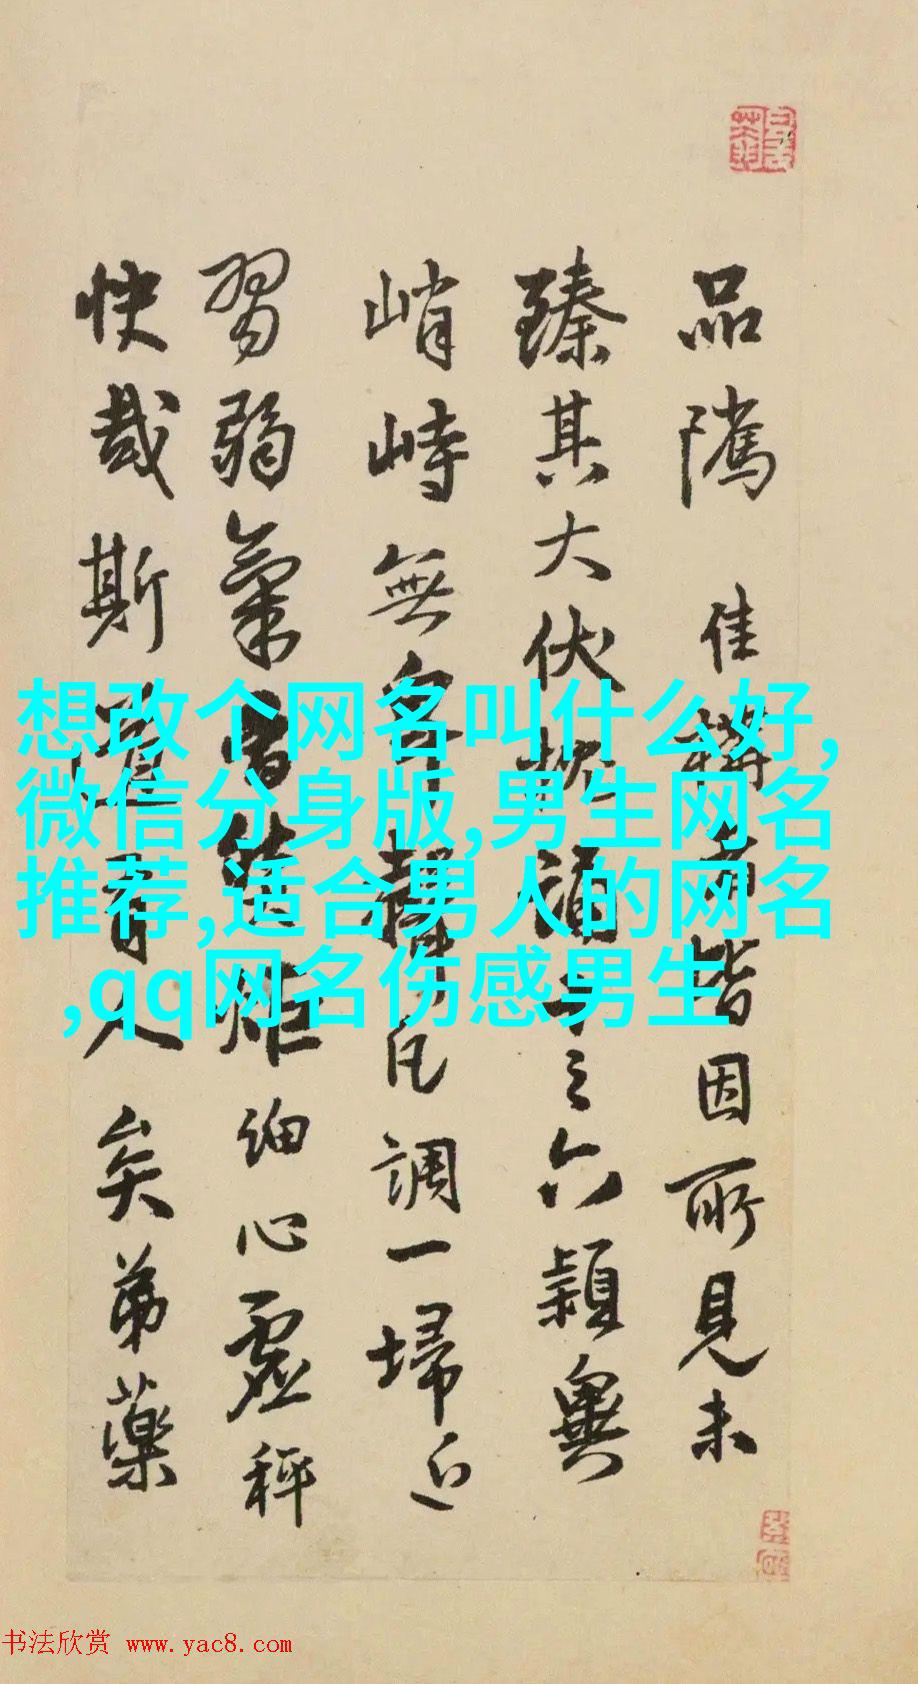 品隲佳搆皆因所見未
臻其大伏枕誦六穎異
峭峙無凡調一埽近
習弱氣炬細心虛秤
快哉斯人矣弟藥
想改个网名叫什么好,
微信分身版,男生网名
推荐,适合男人的网名
,qq网名伤感男生
书法欣赏 www.yac8.com